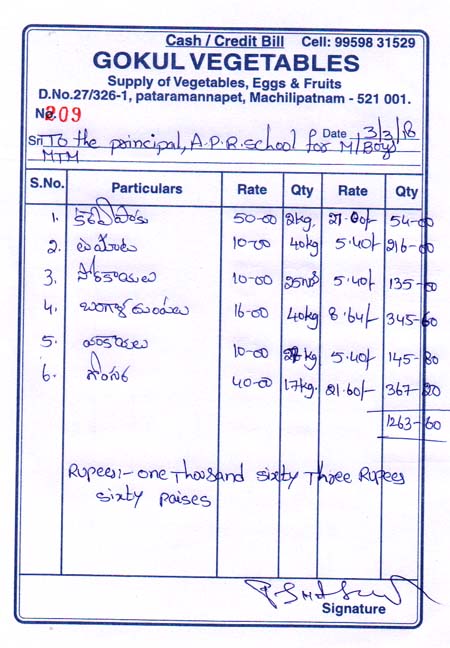 Cash / Credit Bill Cell: 99598 31529
GOKUL VEGETABLES
Supply of Vegetables, Eggs & Fruits
D.No.27/326-1, pataramannapet, Machilipatnam - 521 001.
No. 209
Sri To the principal, A.P.R. school for M/Boys Date 3/3/18
MTM
S.No. Particulars Rate Qty Rate Qty
1. కరివేపాకు 50-00 2kg. 27.00/- 54-00
2. టమోట 10-00 40kg 5.40/- 216-00
3. సొరకాయలు 10-00 5.40/- 135-00
4. బంగాళదుంపలు 16-00 40kg 8.64/- 345-60
5. 10-00 kg. 5.40/- 145-80
6. గోంగూర 40-00 17kg. 21.60/- 367-20
1263-60
Rupees:- one Thousand sixty Three Rupees
sixty paises
Signature